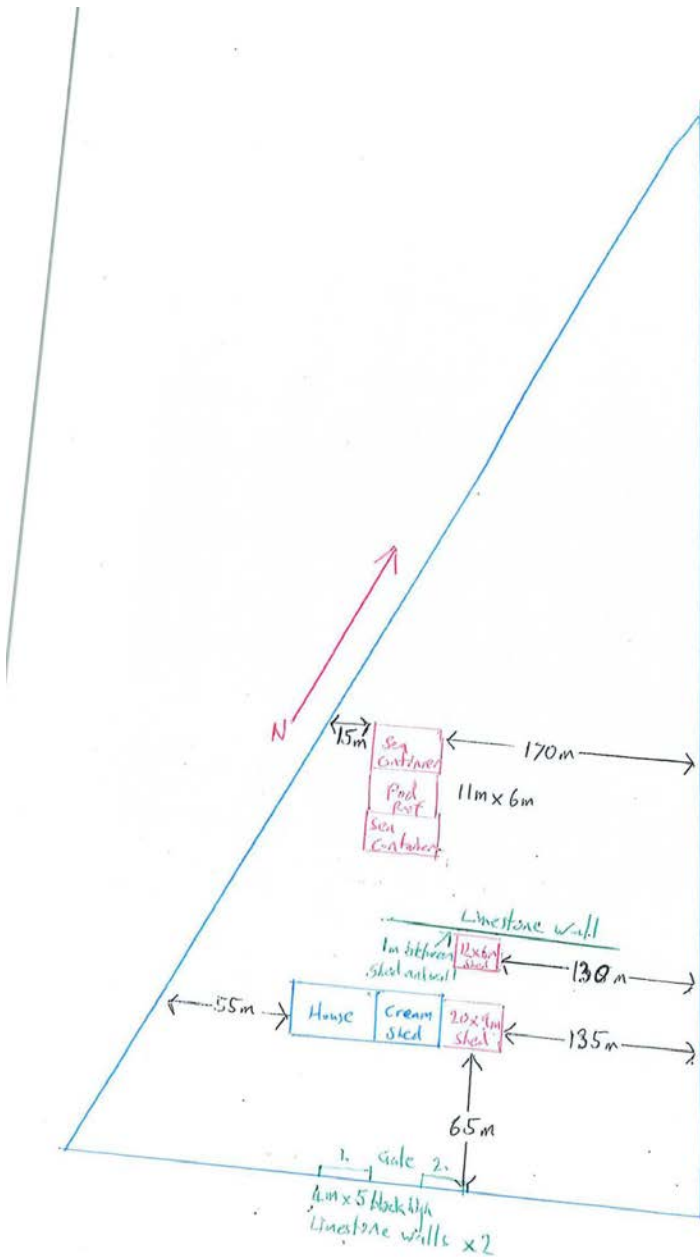 N
15m
Sea
Container
170m
11m x 6m
Sea
Container
Limestone Wall
1m between
shed and wall
12x6m
shed
130m
55m
House
Cream
shed
20x9m
shed
135m
65m
1.
Gate
2.
4m x 5 block high
Limestone walls x2